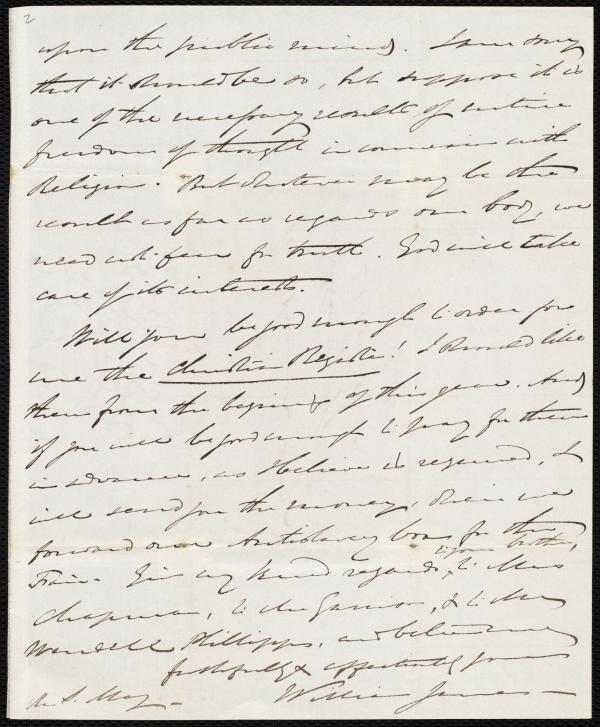 2
upon the public mind. I am sorry
that it should be so, but suppose it is
one of the necessary results of entire
freedom of thought in connexion with
Religion. But whatever may be the
result as far as regards our body, we
need not fear for truth. God will take
care of its interests.
Will you be good enough to order for
me the Christian Register! I should like
them from the beginng of this year. And
if you will be good enough to pay for them
in advance, as I believe is required, I
will send you the money, when we
forward our Antislavery box for the
to your brother,
Fair. Give my kind regards, to Mrs
Chapman, to Mr Garrison, & to Mr
Wendell Phillipps, and believe me
faithfully & affectionately yours
William James
S. May